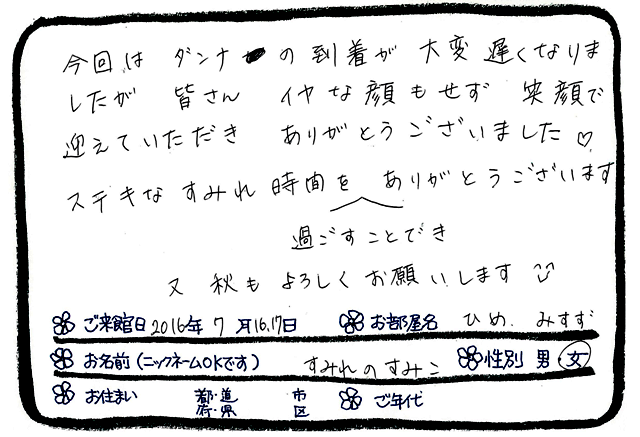 今回は ダンナの到着が 大変 遅くなりま
したが 皆さん イヤな顔もせず 笑顔で
迎えていただき ありがとうございました♡
ステキな すみれ 時間を ありがとうございます
過ごすことでき
又 秋も よろしく お願いします
ご来館日 2016年 7月16,17日 お部屋名 ひめ、みすず
お名前(ニックネームOKです) すみれのすみこ 性別 男 女
お住まい 都・道 府・県 市 区 ご年代